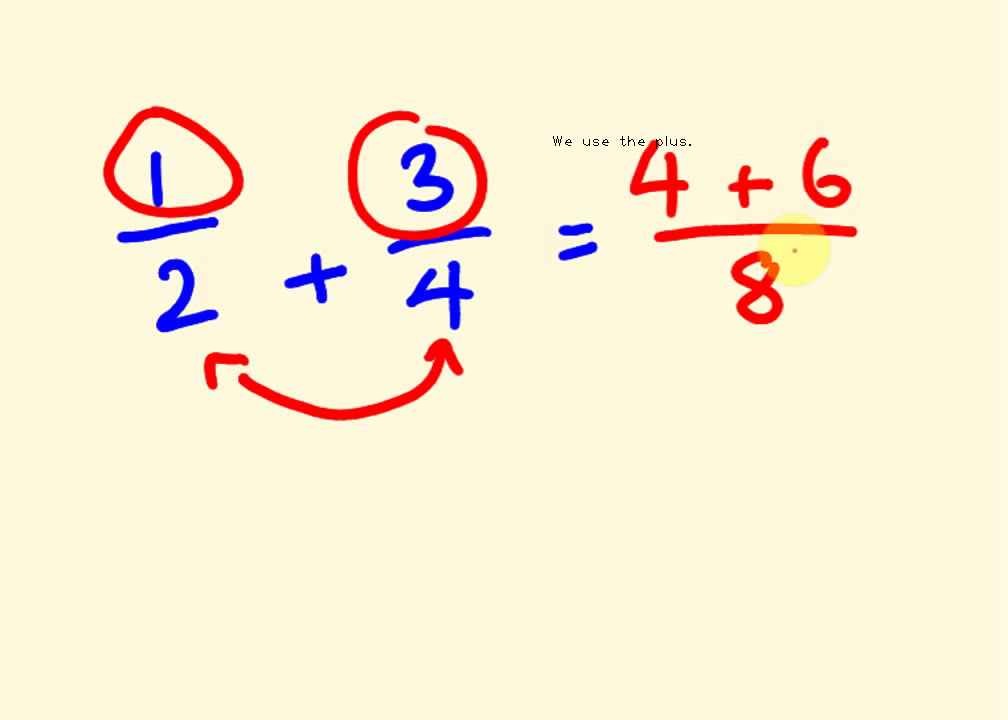 We use the plus.
1/2 + 3/4 = (4 + 6)/8